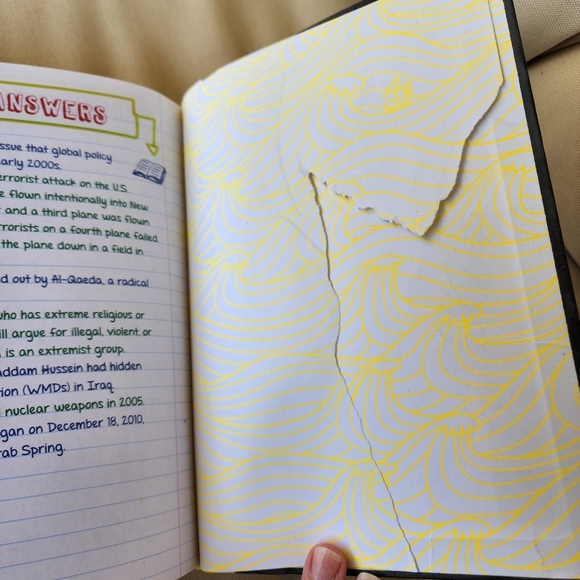 ANSWERS
ssue that global policy
early 2000s.
errorist attack on the U.S.
e flown intentionally into New
and a third plane was flown
rrorists on a fourth plane failed
the plane down in a field in
d out by Al-Qaeda, a radical
who has extreme religious or
ill argue for illegal, violent, or
is an extremist group.
addam Hussein had hidden
tion (WMDs) in Iraq.
nuclear weapons in 2005.
gan on December 18, 2010,
rab Spring.